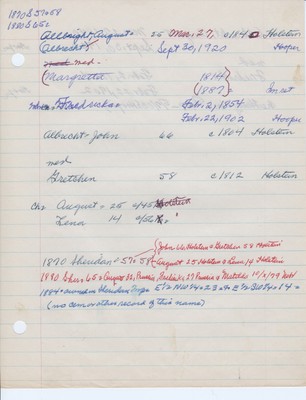 1870 S 57-58
1880 S 65 c
Albright - August - 25 Mar. 27, c1840 Holstein
Albrecht Sept 30, 1920 Hooper
med
Margretta 1814
1887 Im cat
Fredericka Feb. 2, 1854
Feb. 22, 1902 Hooper
Albrecht - John 66 c1804 Holstein
med
Gretchen 58 c1812 Holstein
Chr August - 25 c/45 Holstein
Lena 14 c/56 "
1870 Sheridan - 57-58 (John 66 Holstein - Gretchen 58 Holstein
August 25 Holstein - Lena 14 Holstein
1880 Sher - 65 - August 38, Prussia 27 Prussia - Matilda 10/12/79 Neb
1884 - owned in Sheridan Twp - E½ NW¼ - 23 - E½ SW¼ - 14 -
(no cem or other record of this name)